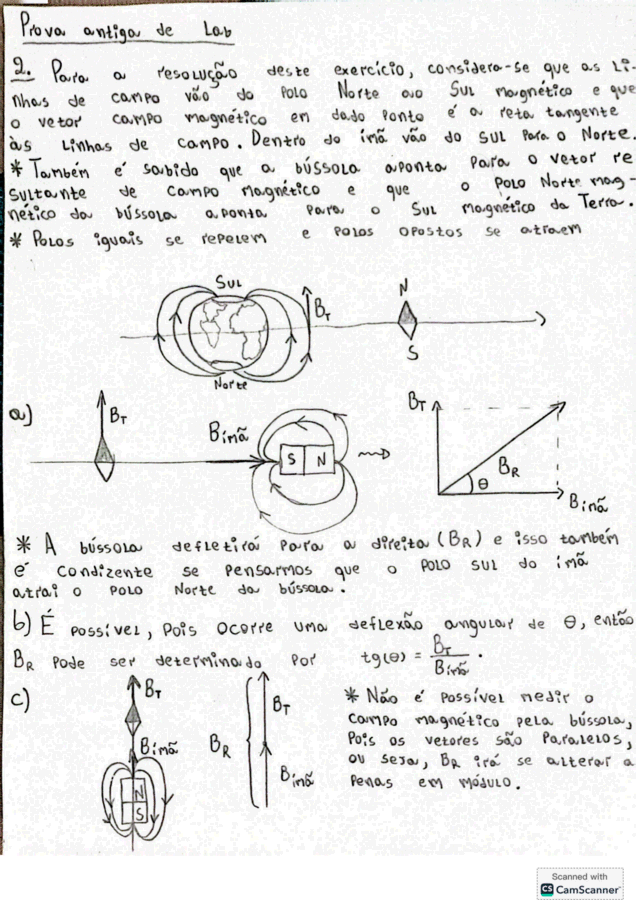 Prova antiga de Lab
2. Para a resolução deste exercício, considera-se que as Li-
nhas de campo vão do Polo Norte ao Sul magnético e que
o vetor campo magnético em dado Ponto é a reta tangente
às Linhas de campo. Dentro do ímã vão do sul Para o Norte.
* Também é sabido que a bússola aponta Para o vetor re
sultante de campo magnético e que o Polo Norte mag-
nético da bússola aponta Para o Sul magnético da Terra.
* Polos iguais se repelem e Polos opostos se atraem
Sul
B_T
N
S
Norte
a)
B_T
B_ímã
S N
B_T
B_R
θ
B_ímã
* A bússola defletirá Para a direita (B_R) e isso também
é condizente se Pensarmos que o Polo sul do ímã
atrai o Polo Norte da bússola.
b) É Possível, Pois ocorre uma deflexão angular de θ, então
B_R Pode ser determinado Por tg(θ) = B_T / B_ímã .
c)
B_T
B_ímã
N
S
B_R
B_T
B_ímã
* Não é Possível medir o
campo magnético pela bússola,
Pois os vetores são Paralelos,
ou seja, B_R irá se alterar a
Penas em módulo.
Scanned with
CS CamScanner